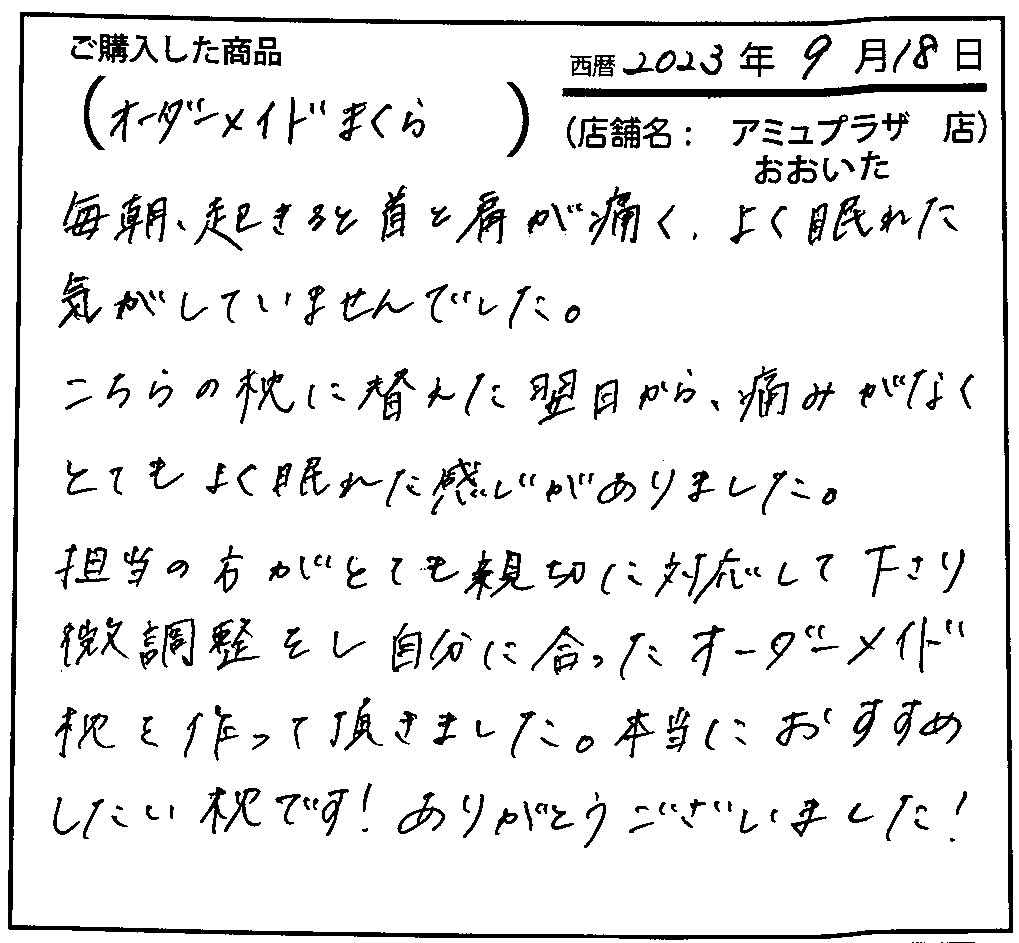 ご購入した商品
西暦 2023 年 9 月 18 日
(オーダーメイドまくら)
(店舗名: アミュプラザ 店)
おおいた
毎朝、起きると首と肩が痛く、よく眠れた
気がしていませんでした。
こちらの枕に替えた翌日から、痛みがなく
とてもよく眠れた感じがありました。
担当の方がとても親切に対応して下さり
微調整をし自分に合ったオーダーメイド
枕を作って頂きました。本当におすすめ
したい枕です!ありがとうございました!